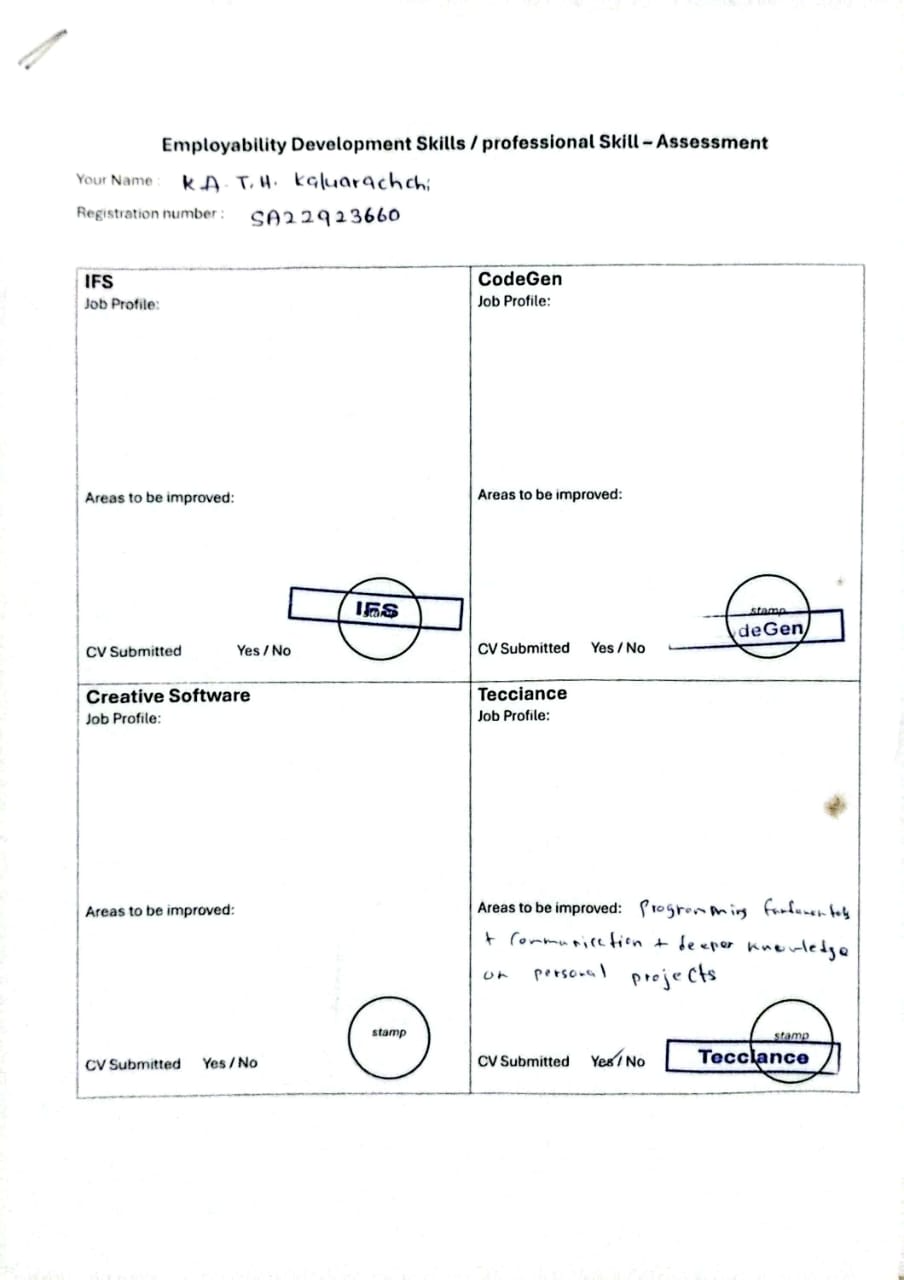 Employability Development Skills / professional Skill – Assessment
Your Name : K.A. T.H. Kaluarachchi
Registration number : SA22923660
IFS
Job Profile:
Areas to be improved:
IFS
CV Submitted Yes / No
CodeGen
Job Profile:
Areas to be improved:
stamp
deGen
CV Submitted Yes / No
Creative Software
Job Profile:
Areas to be improved:
stamp
CV Submitted Yes / No
Tecciance
Job Profile:
Areas to be improved: Programming fundamentals
+ Communication + deeper knowledge
on personal projects
stamp
CV Submitted Yes / No Tecciance